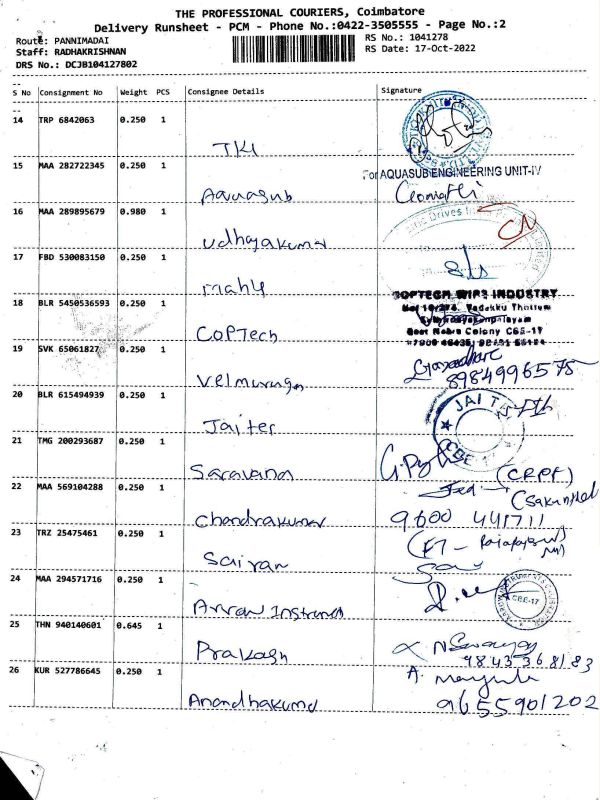 THE PROFESSIONAL COURIERS, Coimbatore
Delivery Runsheet - PCM - Phone No.:0422-3505555 - Page No.:2
Route: PANNIMADAI
RS No.: 1041278
Staff: RADHAKRISHNAN
RS Date: 17-Oct-2022
DRS No.: DCJB104127802
S No Consignment No Weight PCS Consignee Details Signature
14 TRP 6842063 0.250 1
TKI
15 MAA 282722345 0.250 1
For AQUASUB ENGINEERING UNIT-IV
Aquasub Gomathi
16 MAA 289895679 0.980 1
CN
Udhayakumar
17 FBD 530083150 0.250 1
Mahle
18 BLR 5450536593 0.250 1
COPTECH WIRE INDUSTRY
Colony CBE-17
CopTech
19 SVK 65061827 0.250 1
Velmurugan 8984996575
20 BLR 615494939 0.250 1
JAI
Jaitec
CBE
21 TMG 200293687 0.250 1
Saravana
(CRPF)
22 MAA 569104288 0.250 1
Chandrakumar 9600 441711
23 TRZ 25475461 0.250 1
Sairam
24 MAA 294571716 0.250 1
CBE-17
25 THN 940140601 0.645 1
Prakash 9843368183
26 KUR 527786645 0.250 1
A.
Anandhakumar 9655901202